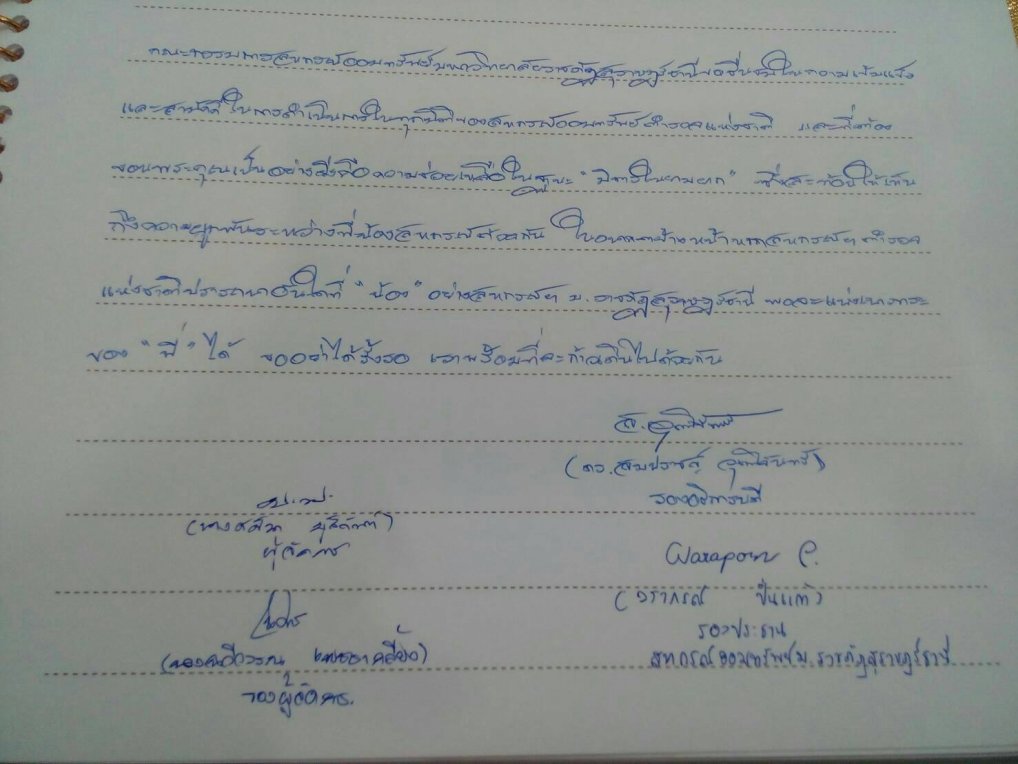 คณะกรรมการสหกรณ์ออมทรัพย์มหาวิทยาลัยราชภัฏสุราษฎร์ธานีขอชื่นชมในความเข้มแข็ง
และสามัคคีในการดำเนินการในทุกมิติของสหกรณ์ออมทรัพย์ตำรวจแห่งชาติ และที่ต้อง
ขอบพระคุณเป็นอย่างยิ่งคือความช่วยเหลือในฐานะ "มิตรในยามยาก" ซึ่งสะท้อนให้เห็น
ถึงความผูกพันระหว่างพี่น้องสหกรณ์ด้วยกัน ในอนาคตข้างหน้าหากสหกรณ์ฯ ตำรวจ
แห่งชาติปรารถนาอันใดที่ "น้อง" อย่างสหกรณ์ฯ ม.ราชภัฏสุราษฎร์ธานี พอจะแบ่งเบาภาระ
ของ "พี่" ได้ ขออย่าได้รั้งรอ เราพร้อมที่จะก้าวเดินไปด้วยกัน
(ดร.สมปราชญ์
รองอธิการบดี
ผู้จัดการ
Waraporn P.
(วราภรณ์ ปิ่นแก้ว)
รองประธาน
สหกรณ์ออมทรัพย์ม.ราชภัฏสุราษฎร์ธานี
รองผู้จัดการ